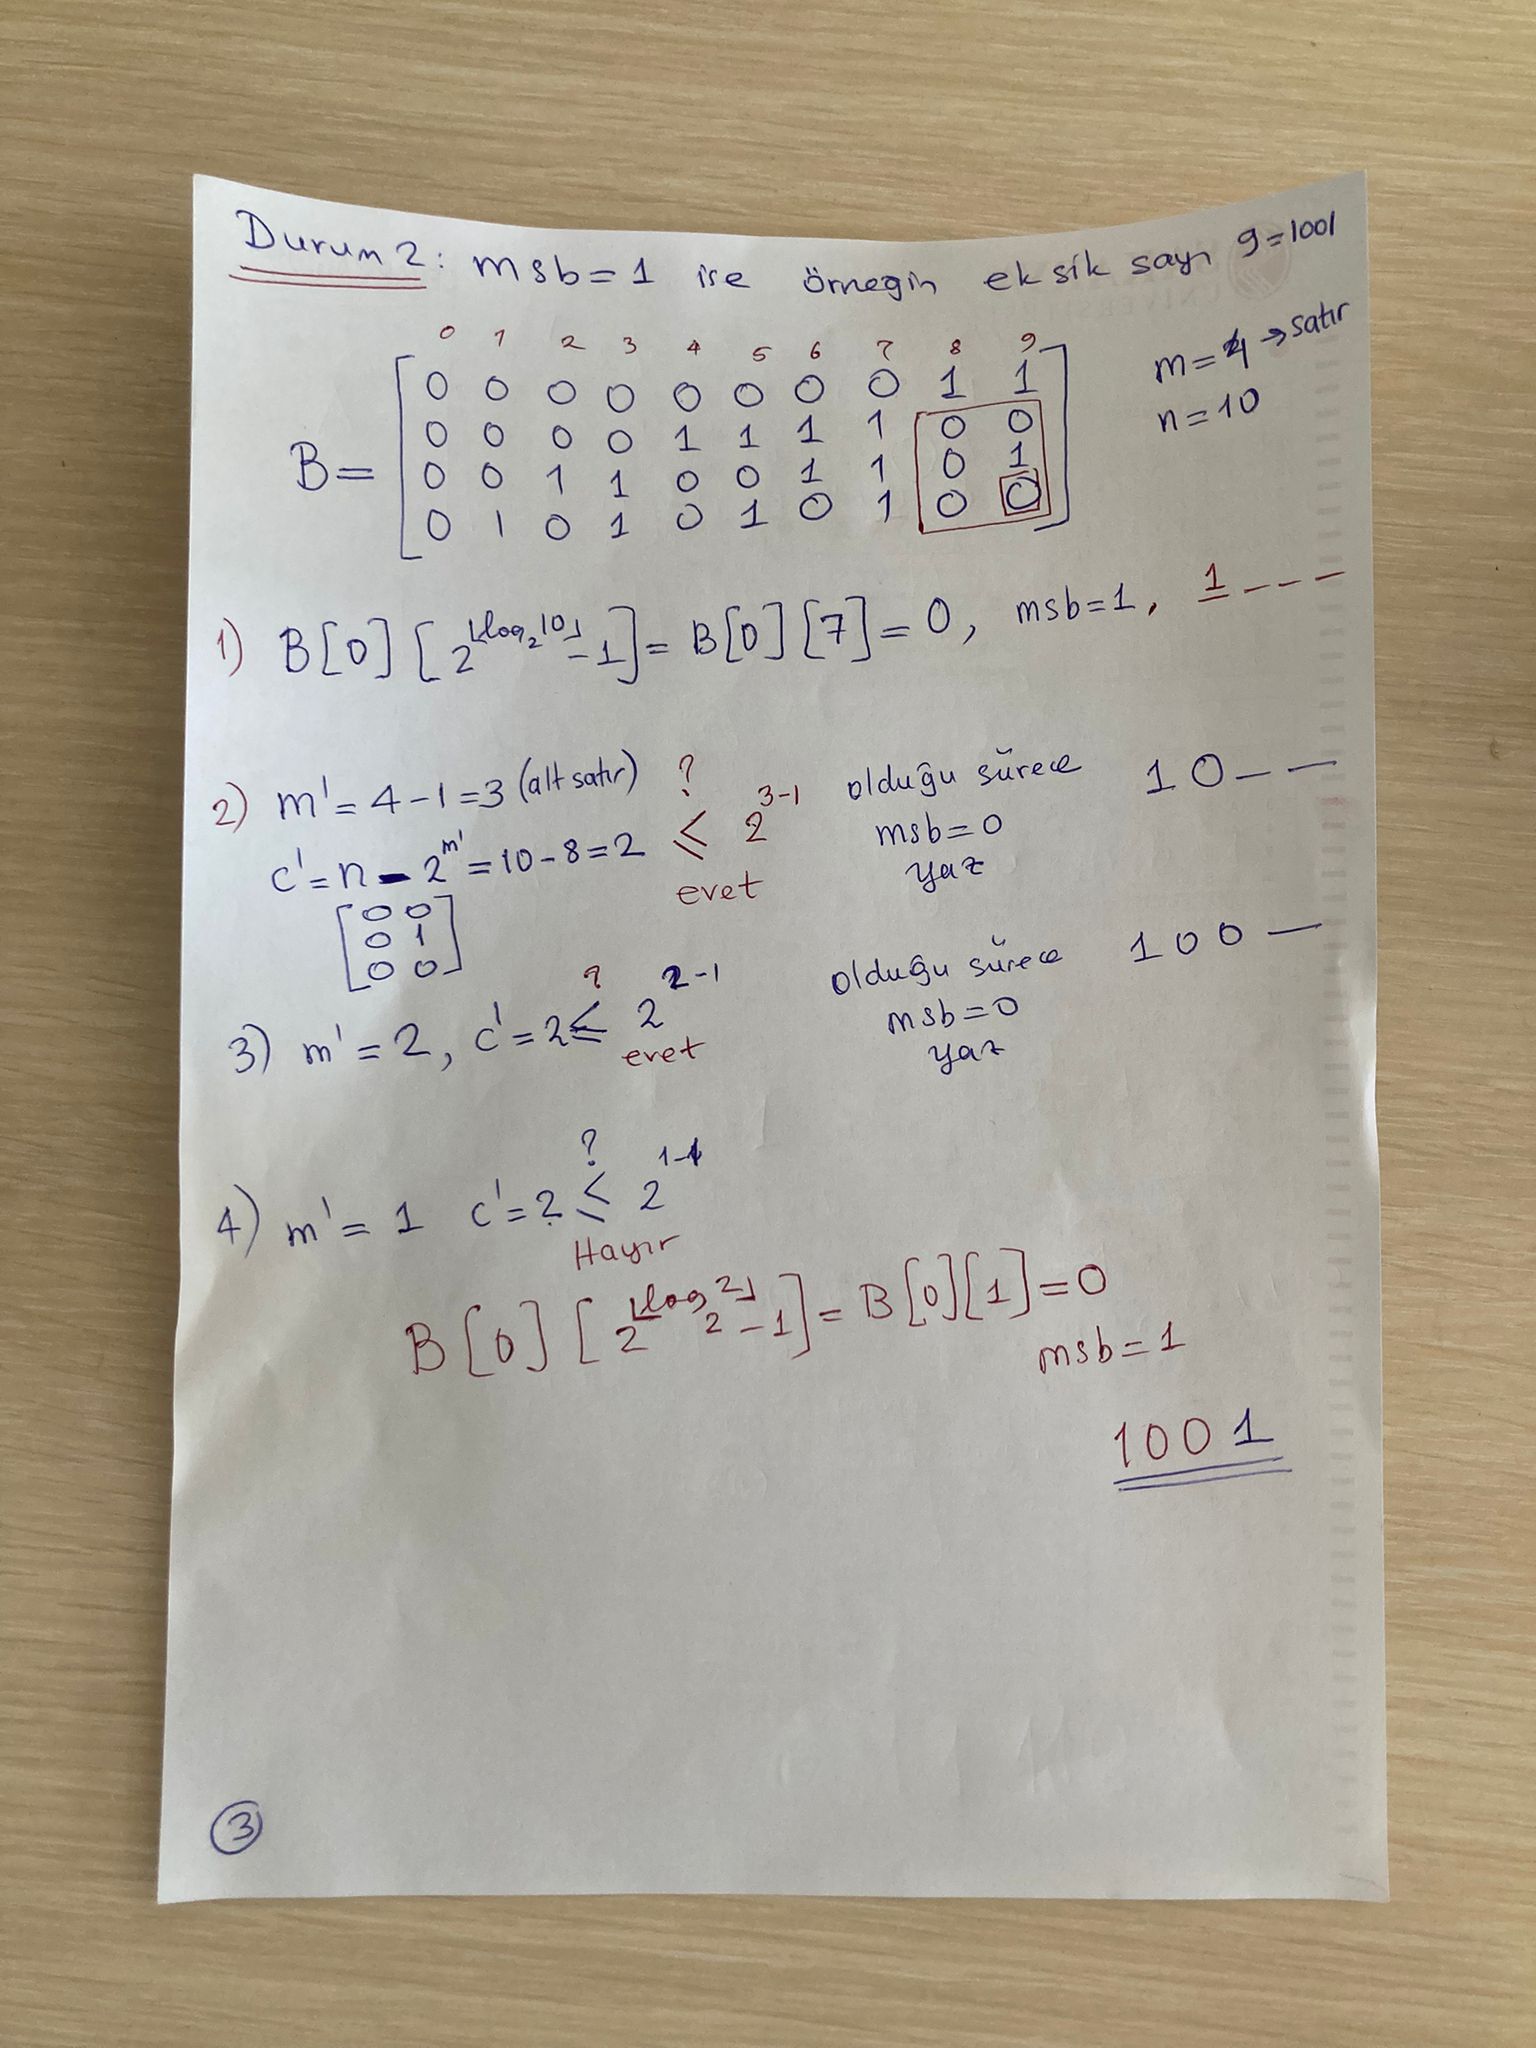 Durum 2: msb=1 ise örneğin eksik sayı 9=1001
0 1 2 3 4 5 6 7 8 9
m=4→satır
n=10
B=
0 0 0 0 0 0 0 0 1 1
0 0 0 0 1 1 1 1 0 0
0 0 1 1 0 0 1 1 0 1
0 1 0 1 0 1 0 1 0 0
1) B[0][2^⌊log₂10⌋-1]= B[0][7]=0, msb=1, 1---
2) m'=4-1=3 (alt satır)
c'=n-2^m'=10-8=2 ≤ 2^3-1
?
evet
olduğu sürece
msb=0
yaz
10--
0 0
0 1
0 0
3) m'=2, c'=2≤ 2^2-1
?
evet
olduğu sürece
msb=0
yaz
100-
4) m'=1 c'=2 ≤ 2^1-1
?
Hayır
B[0][2^⌊log₂2⌋-1]=B[0][1]=0
msb=1
1001
3